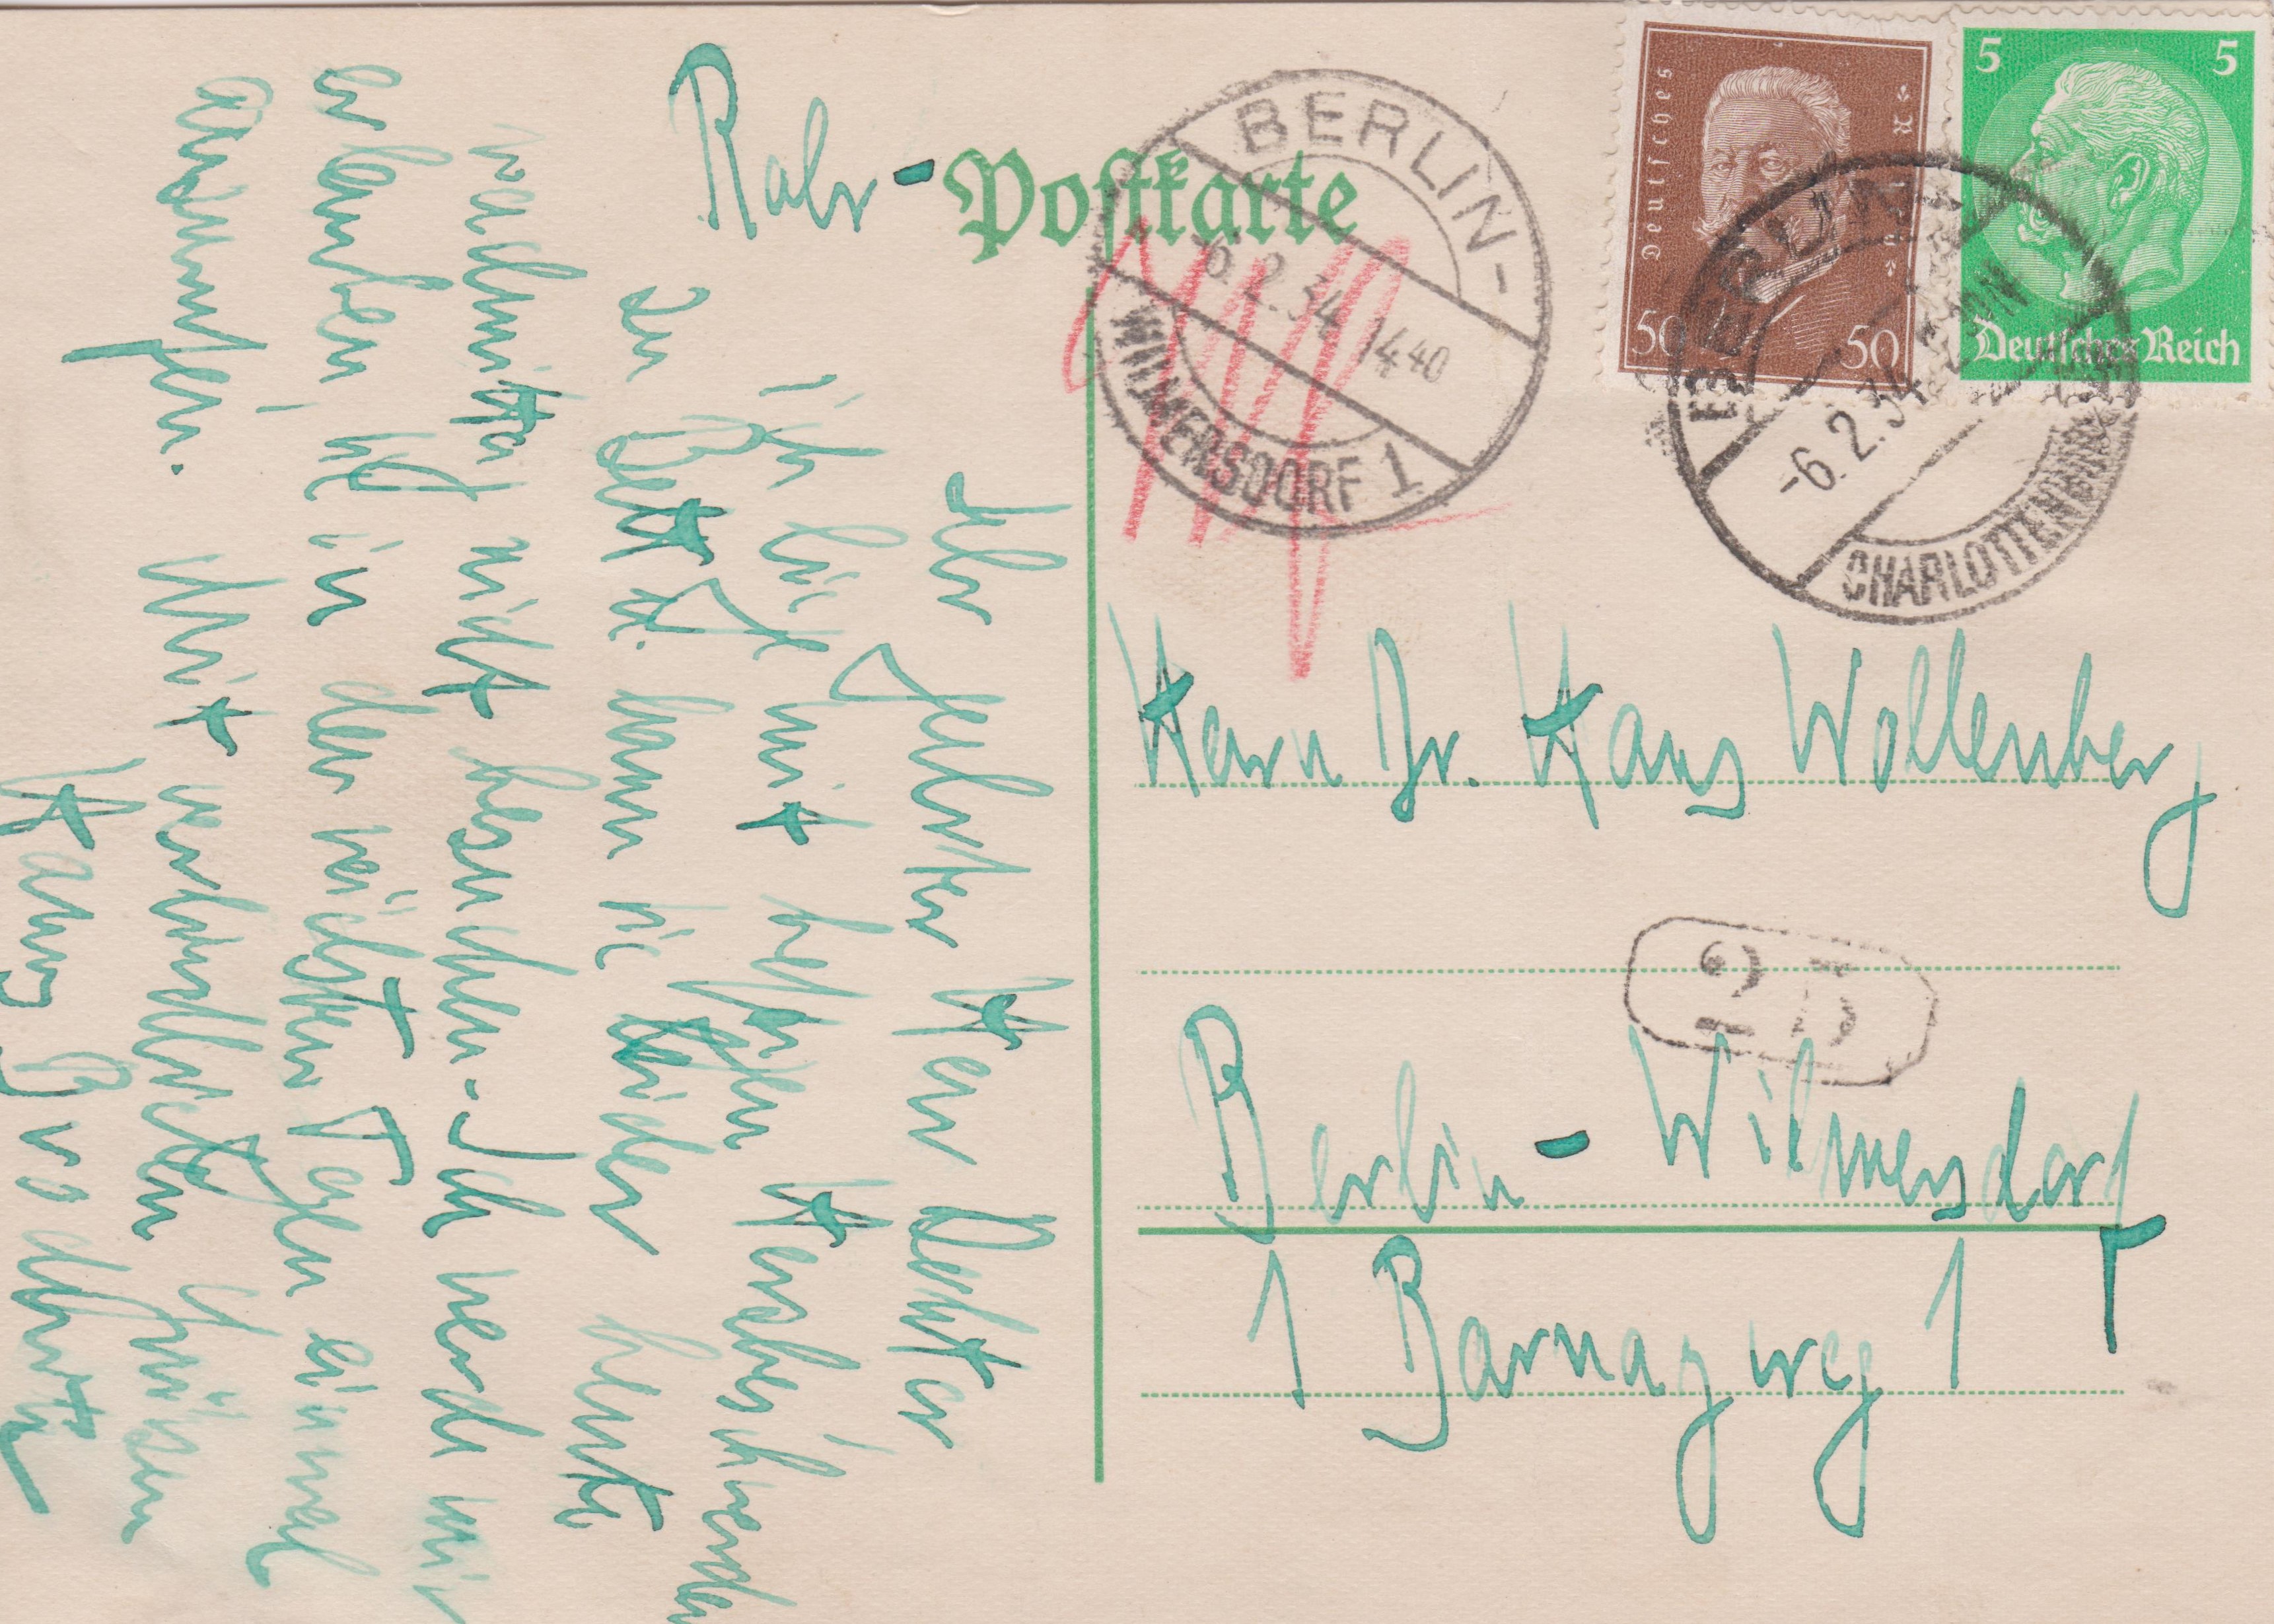 Rohr-
Postkarte
BERLIN-
-6.2.34 1440
WILMERSDORF 1
Deutsches
50
50
5
5
Deutsches Reich
BERLIN
-6.2.34
CHARLOTTENBURG
Herrn Dr. Hans Wollenberg
25
Berlin-Wilmersdorf
1 Barnayweg 1
Sehr geehrter Herr Doktor
ich liege mit heftigen
im Bett u. kann Sie leider heute
nachmittag nicht besuchen. Ich werde mir
erlauben Sie in den nächsten Tagen einmal
anzurufen. Mit verbindlichen Grüßen
Hans Brodnitz